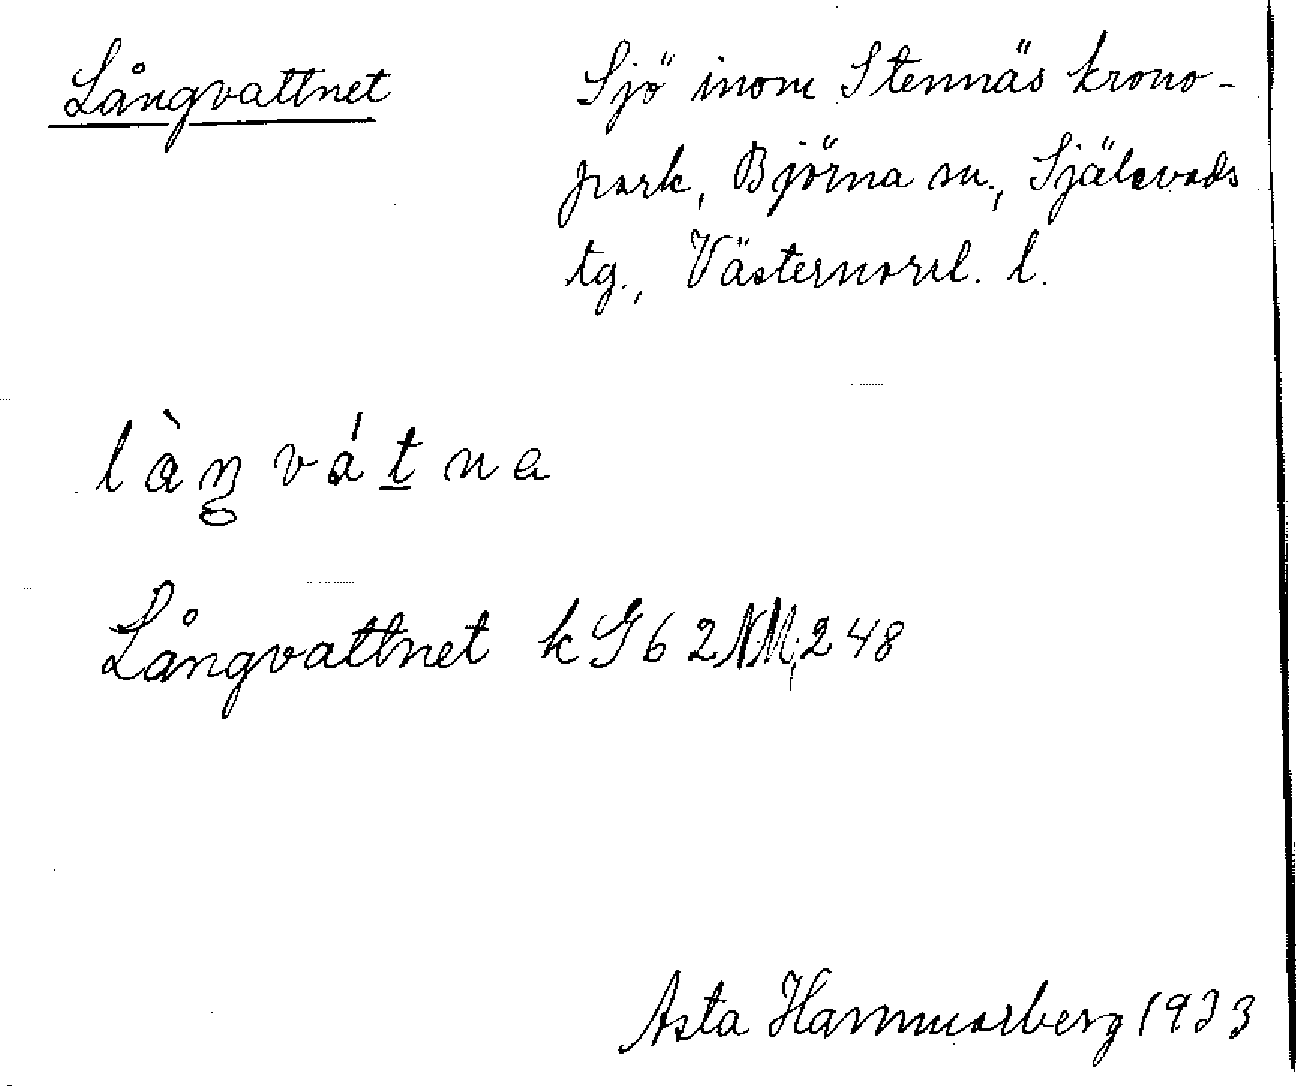 Långvattnet
Sjö inom Stennäs krono-
park, Björna sn., Själevads
tg., Västernorrl. l.
làŋ vá t na
Långvattnet k G 6 2 NM, 248
Asta Hammarberg 1933